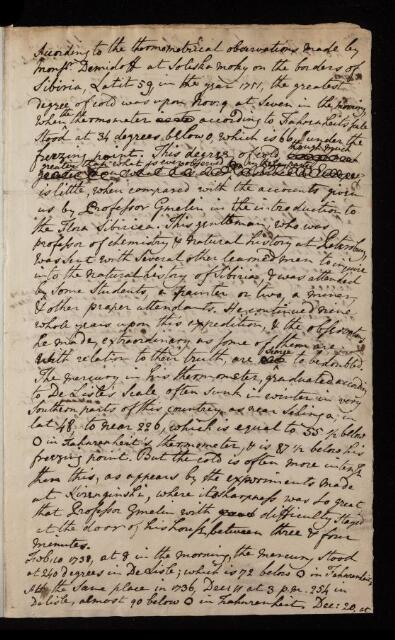 According to the thermometrical observations made by
Monsr. Demidoff at Solikamsky on the borders of
Siberia, Latit 59 in the year 1751, the greatest
degree of cold was upon Nov. 9 at Seven in the morning
When the thermometer according to Fahrenheit's scale
Stood at 34 degrees below 0, which is 66 under the
freezing point. This degree of cold though much
greater than what is ever observed in
is little, when compared with the accounts given
us by Professor Gmelin in the introduction to
the Flora Siberica. This gentleman, who was
professor of chemistry & natural history at Petersburg
was sent with several other learned men to inquire
into the natural history of Siberia, & was attended
by Some Students, a painter or two, a miner,
& other proper attendants. He continued nine
whole years upon this expedition, & the observations
he made, extraordinary as some of them are
with relation to their truth, are scarce to be doubted
The mercury in his thermometer, graduated according
to De Lisle's Scale often sunk in winter in very
Southern parts of this country, as near Selinga, in
Lat 48. to near 226, which is equal to 55 1/2 below
0 in Fahrenheit's thermometer, & is 87 1/2 below his
freezing point. But the cold is often more intense
than this, as appears by the experiments made
at Kirenginski, where its sharpness was so great
that Professor Gmelin with difficulty Stayed
at the door of his house between three & four
minutes.
Feb. 10 1738, at 8 in the morning, the mercury stood
at 240 degrees in De Lisle; which is 72 below 0 in Fahrenheit,
At the same place in 1736, Dec. 11 at 3 p.m. 254 in
De Lisle, almost 90 below 0 in Fahrenheit. Dec: 20, at